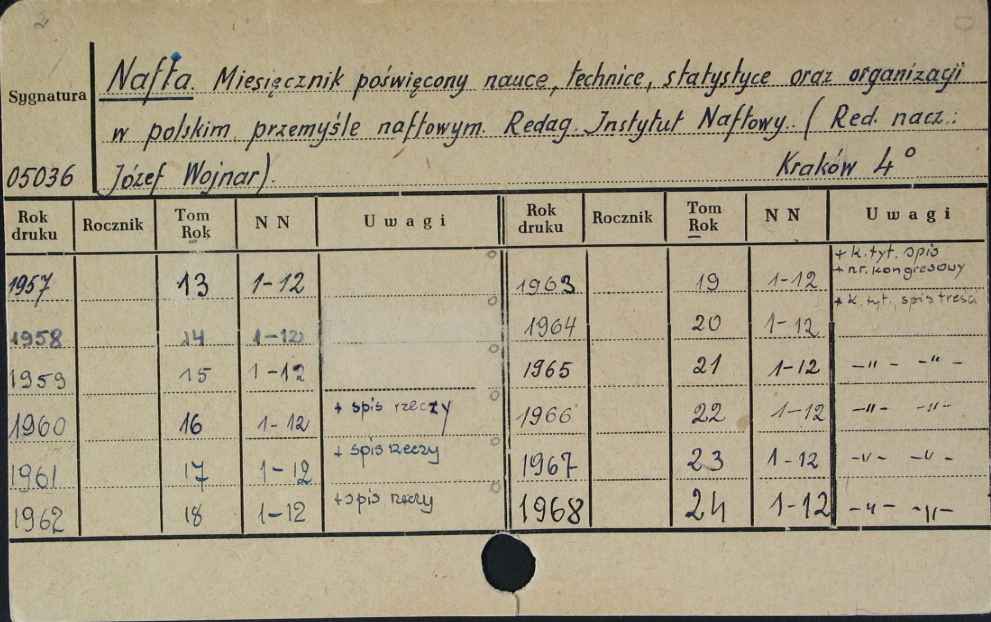 2
Sygnatura
Nafta. Miesięcznik poświęcony nauce, technice, statystyce oraz organizacji
w polskim przemyśle naftowym. Redag. Instytut Naftowy. (Red. nacz.:
05036 Józef Wojnar). Kraków 4°
Rok druku Rocznik Tom Rok NN Uwagi Rok druku Rocznik Tom Rok NN Uwagi
1957 13 1-12
1958 14 1-12
1959 15 1-12
1960 16 1-12 + spis rzeczy
1961 17 1-12 + spis rzeczy
1962 18 1-12 + spis rzeczy
1963 19 1-12 + k.tyt. spis
+ nr. kongresowy
1964 20 1-12 + k. tyt. spis treści
1965 21 1-12 -"- -"-
1966 22 1-12 -"- -"-
1967 23 1-12 -"- -"-
1968 24 1-12 -"- -"-